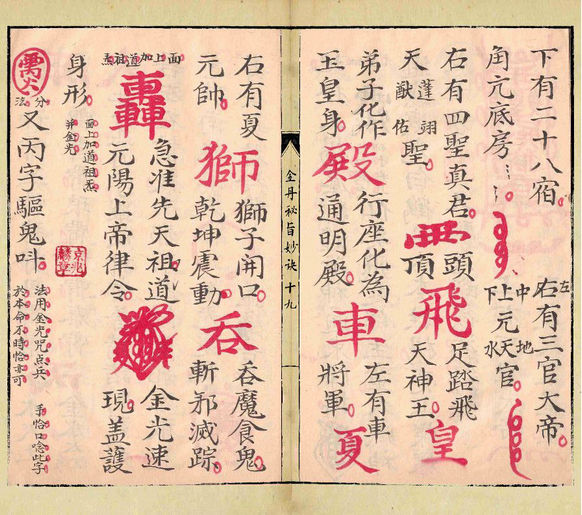 下有二十八宿。
角亢底房
左右有三官大帝。
中上下元
地天水官。
右有四聖真君。
天蓬猷翊佑聖。
頭頂
飛
足踏飛
天神王。
皇
弟子化作
玉皇身。
殿
行座化為
通明殿。
車
左有車
將軍。
夏
金丹秘旨妙诀 十九
右有夏
元帥。
獅
獅子開口
乾坤震動。
吞
吞魔食鬼
斬邪滅踪。
面上加道祖炁
轟
急准先天祖道
元陽上帝律令。
金光速
現。蓋護
身形。
面上加道祖炁
并金光
分法
又丙字驅鬼呌。
法用金光咒点兵
於本命不時恰亦可
手恰口念此字